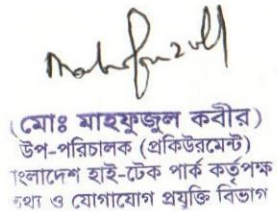 (মোঃ মাহফুজুল কবীর)
উপ-পরিচালক (প্রকিউরমেন্ট)
াংলাদেশ হাই-টেক পার্ক কর্তৃপক্ষ
তথ্য ও যোগাযোগ প্রযুক্তি বিভাগ